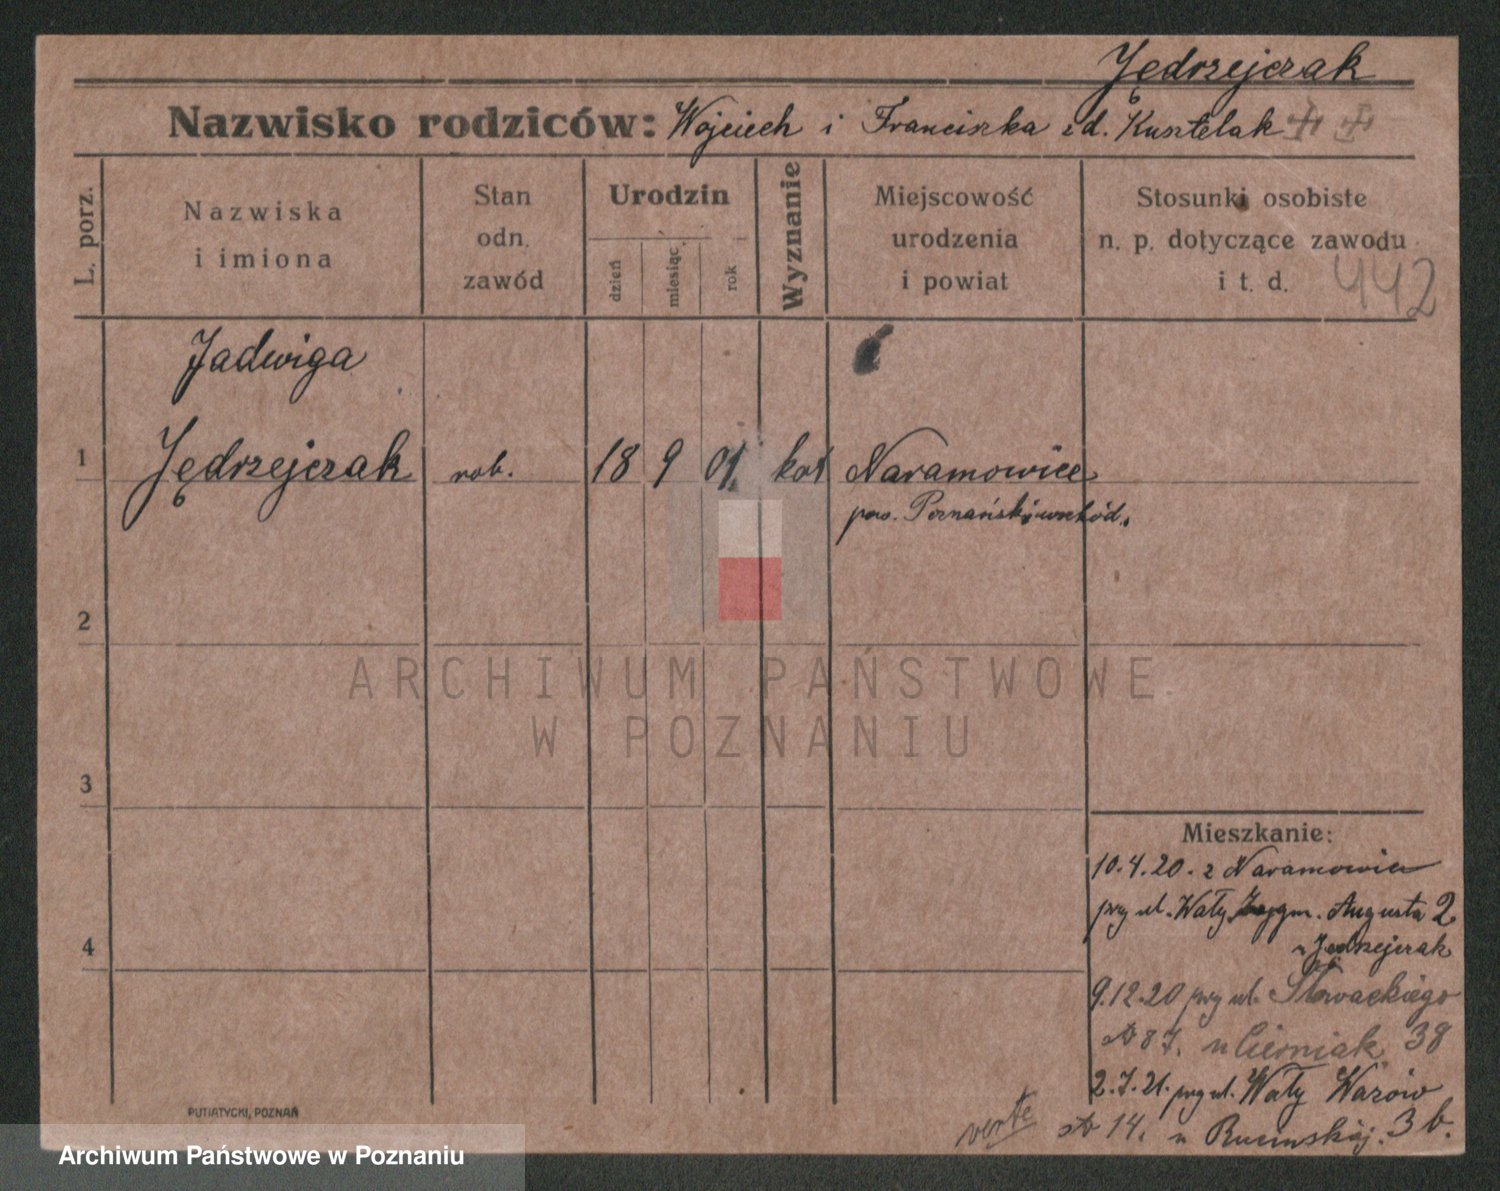 Jędrzejczak
Nazwisko rodziców: Wojciech i Franciszka z d. Kusztelak ++
L. porz.
Nazwiska
i imiona
Stan
odn.
zawód
Urodzin
dzień
miesiąc
rok
Wyznanie
Miejscowość
urodzenia
i powiat
Stosunki osobiste
n. p. dotyczące zawodu
i t. d.
442
Jadwiga
1 Jędrzejczak rob. 18 9 01. kat Naramowice
pow. Poznański wschód.
2
ARCHIWUM PAŃSTWOWE
W POZNANIU
3
Mieszkanie:
10.4.20. z Naramowic
przy ul. Wały Zygm. Augusta 2
u Jędrzejczak
4
9.12.20 przy ul. Słowackiego
38 u Cierniak
2.7.21. przy ul. Wały Wazów
14. u 3 b.
verte
PUTIATYCKI, POZNAŃ
Archiwum Państwowe w Poznaniu